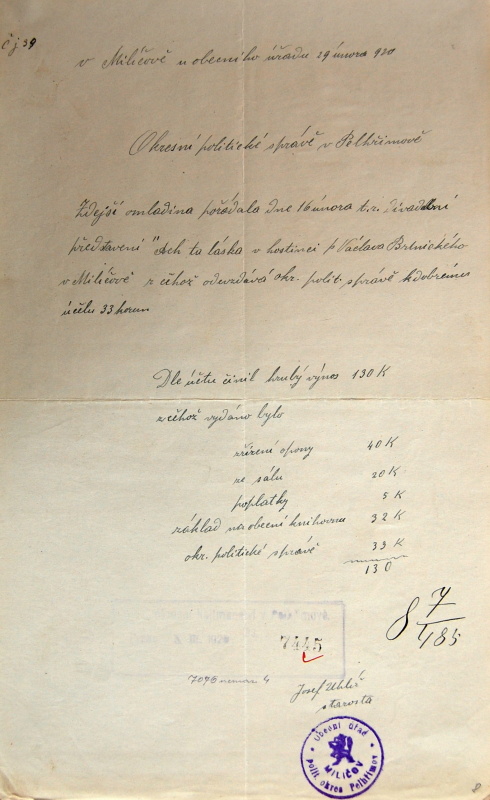 čj 39
v Miličově u obecního úřadu 29 února 920
Okresní politické správě v Pelhřimově
Zdejší omladina pořádala dne 16 února t.r. divadelní
představení "Ach ta láska v hostinci p Václava Brtnického
v Miličově z čehož odevzdává okr. polit. správě k dobrému
účelu 33 korun
Dle účtu činil hrubý výnos 130 K
z čehož vydáno bylo
zřízení opony 40 K
ze sálu 20 K
poplatky 5 K
základ na obecní knihovnu 32 K
okr. politické správě 33 K
130
8 7/485
7445
Josef Uhlíř
starosta
Obecní úřad
MILIČOV
Polit. okres Pelhřimov
8